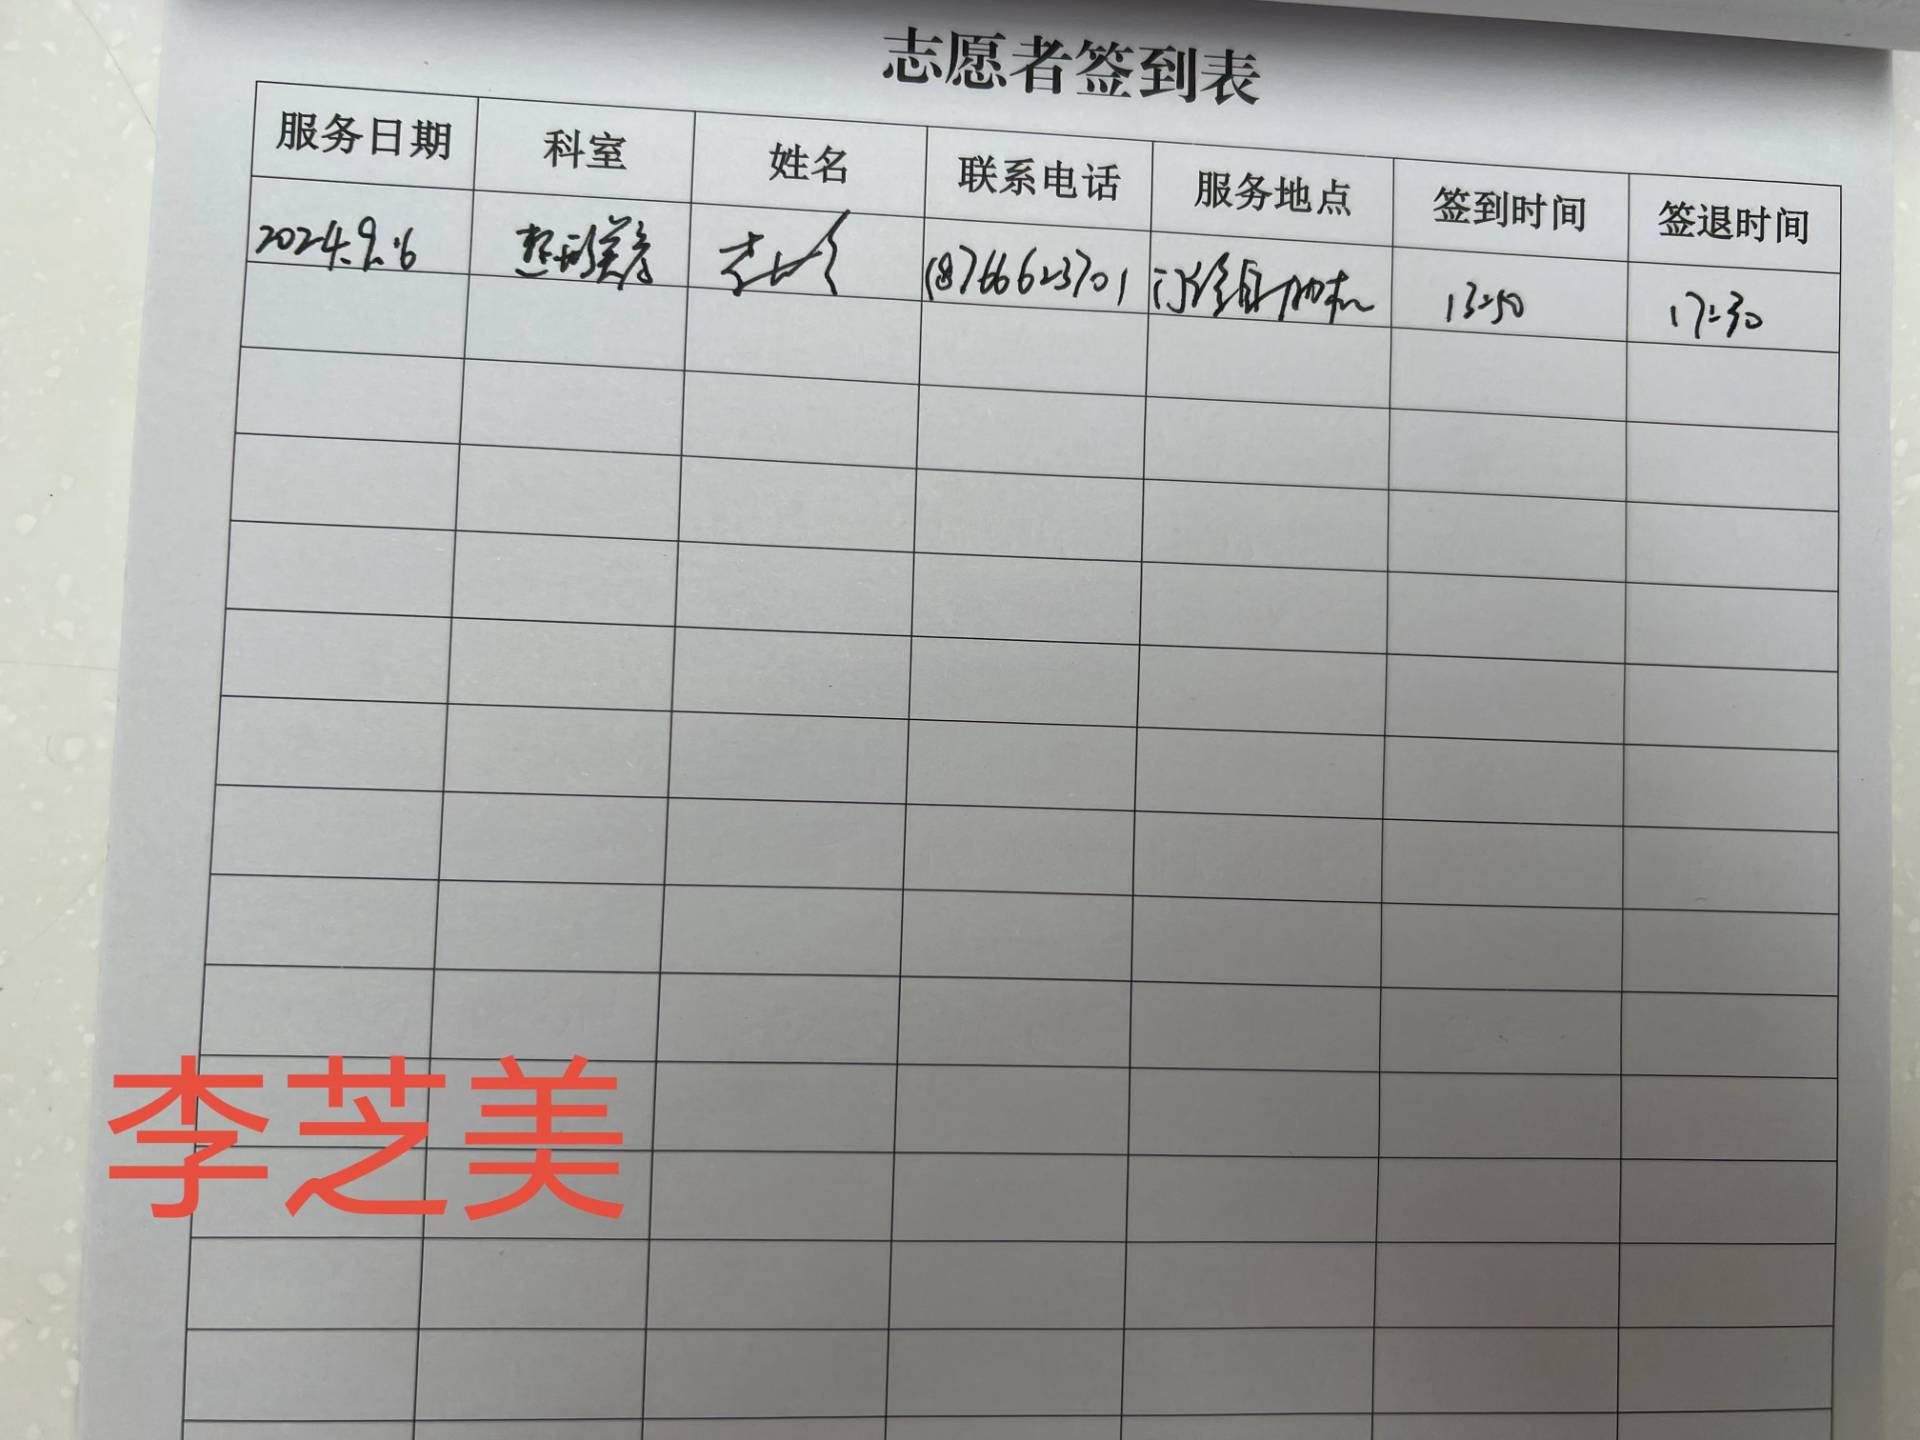 志愿者签到表
服务日期 科室 姓名 联系电话 服务地点 签到时间 签退时间
2024.9.6 整形美容 18766623701 门诊自助机 13:50 17:30
李芝美